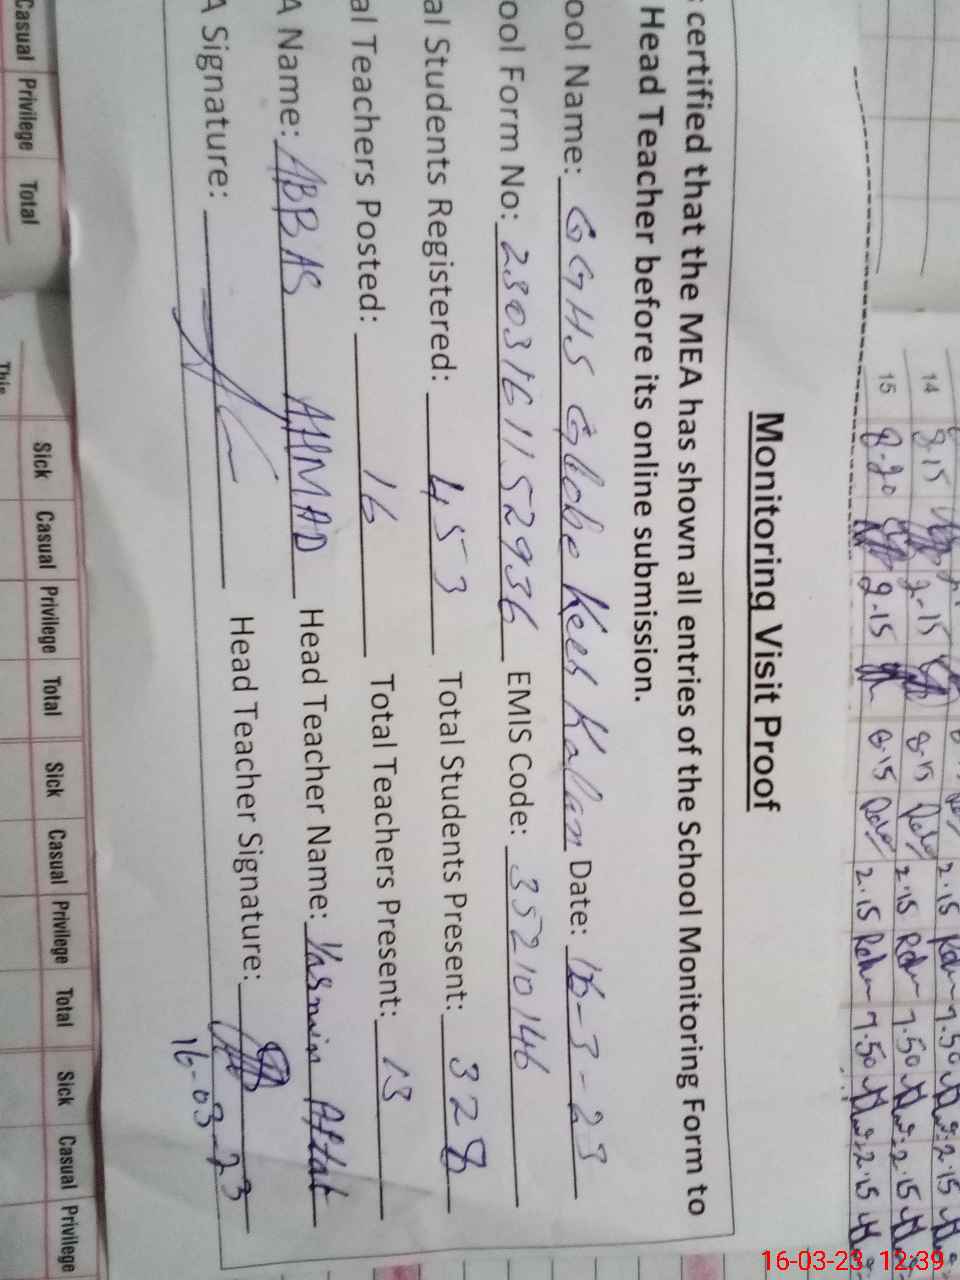 Monitoring Visit Proof
certified that the MEA has shown all entries of the School Monitoring Form to
Head Teacher before its online submission.
ool Name: GGHS Globe Keeh Kallan Date: 16-3-23
ool Form No: 230316115 2936 EMIS Code: 35210146
al Students Registered: 453 Total Students Present: 328
al Teachers Posted: 16 Total Teachers Present: 13
A Name: ABBAS AHMAD Head Teacher Name: Yasmin Aftab
A Signature: Head Teacher Signature:
16-03-23
14 8.15 2.15 8.15 2.15 7.50 2.15
15 8.20 2.15 8.15 2.15 7.50 2.15
Casual Privilege Total
Sick Casual Privilege Total Sick Casual Privilege Total Sick Casual Privilege
This
16-03-23 12:39